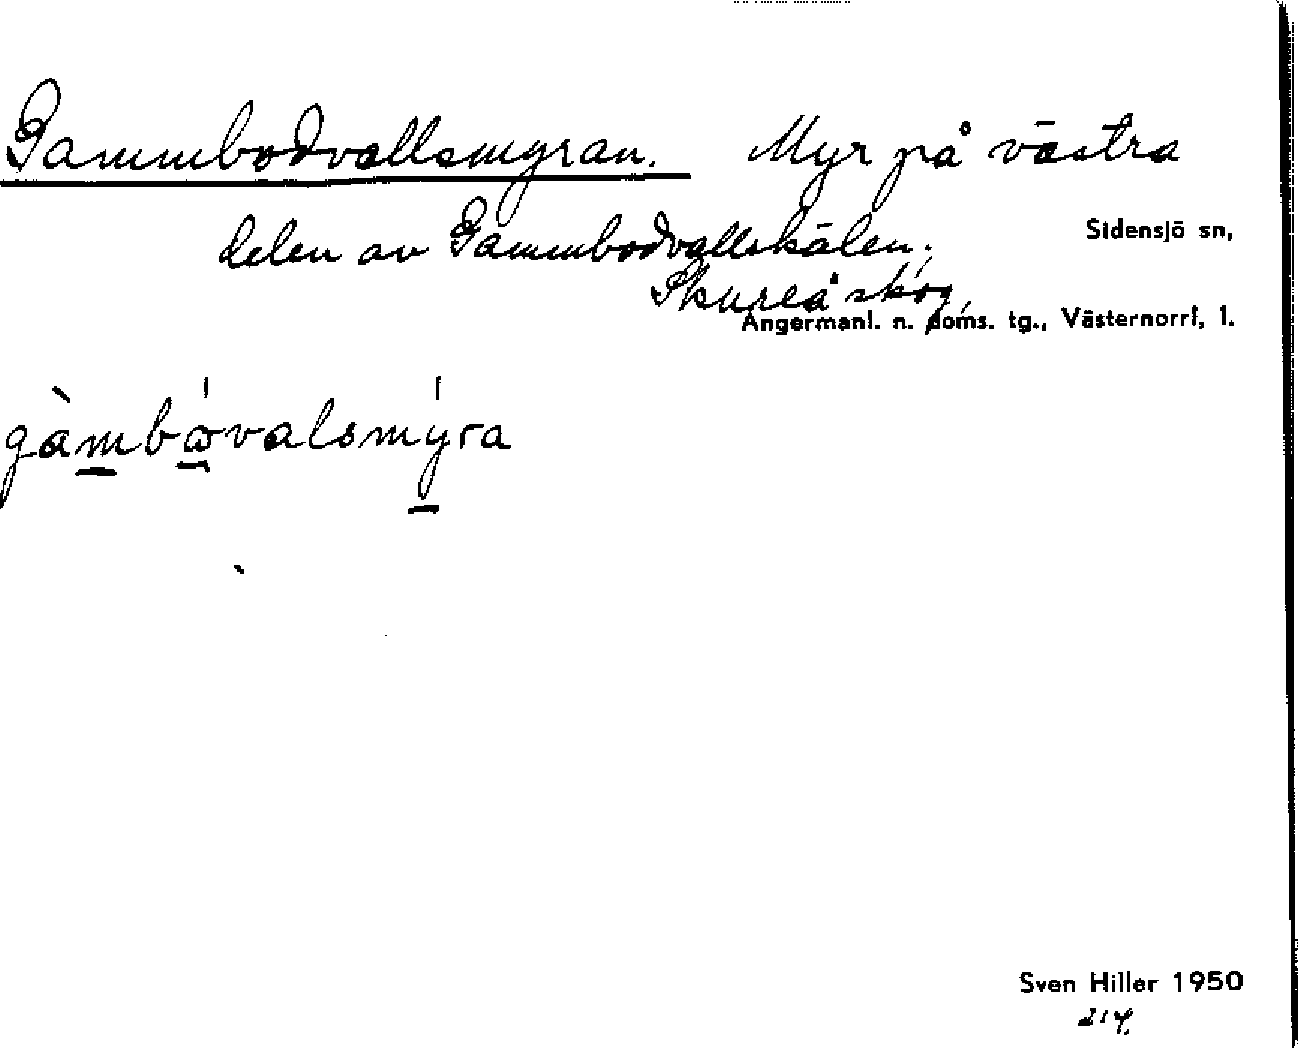 Gammbodvallsmyran. Myr på västra
delen av Gammbodvallskälen.
Sidensjö sn,
Skureå skog,
Ångermanl. n. doms. tg., Västernorrl, l.
gàmbòvalsmýra
Sven Hiller 1950
214.